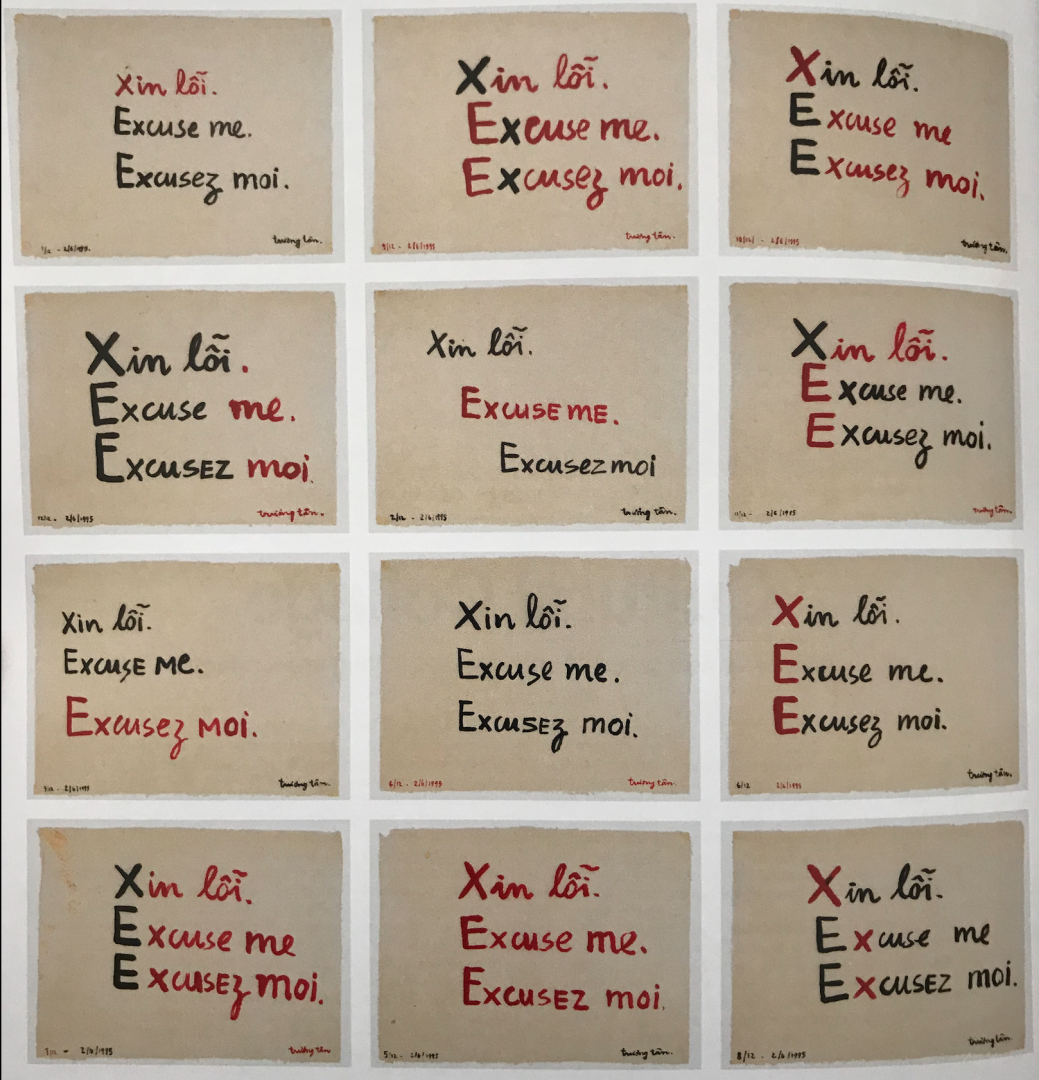 Xin lỗi.
Excuse me.
Excusez moi.
1/12 - 2/6/1995.
trương tân.
Xin lỗi.
Excuse me.
Excusez moi.
9/12 - 2/6/1995
trương tân.
Xin lỗi.
Excuse me
Excusez moi.
10/12/ - 2/6/1995
trương tân.
Xin lỗi.
Excuse me.
EXCUSEZ moi.
12/12 - 2/6/1995
trương tân.
Xin lỗi.
EXCUSE ME.
Excusez moi
2/12 - 2/6/1995
trương tân.
Xin lỗi.
Excuse me.
Excusez moi.
11/12 - 2/6/1995
trương tân.
Xin lỗi.
EXCUSE ME.
Excusez MOI.
2/6/1995
trương tân.
Xin lỗi.
Excuse me.
EXCUSEZ moi.
6/12 - 2/6/1995
trương tân.
Xin lỗi.
Excuse me.
Excusez moi.
6/12 2/6/1995
trương tân.
Xin lỗi.
Excuse me
EXCUSEZ moi.
2/6/1995
trương tân
Xin lỗi.
Excuse me.
EXCUSEZ moi.
5/12 - 2/6/1995
trương tân.
Xin lỗi.
Excuse me
EXCUSEZ moi.
8/12 - 2/6/1995
trương tân.